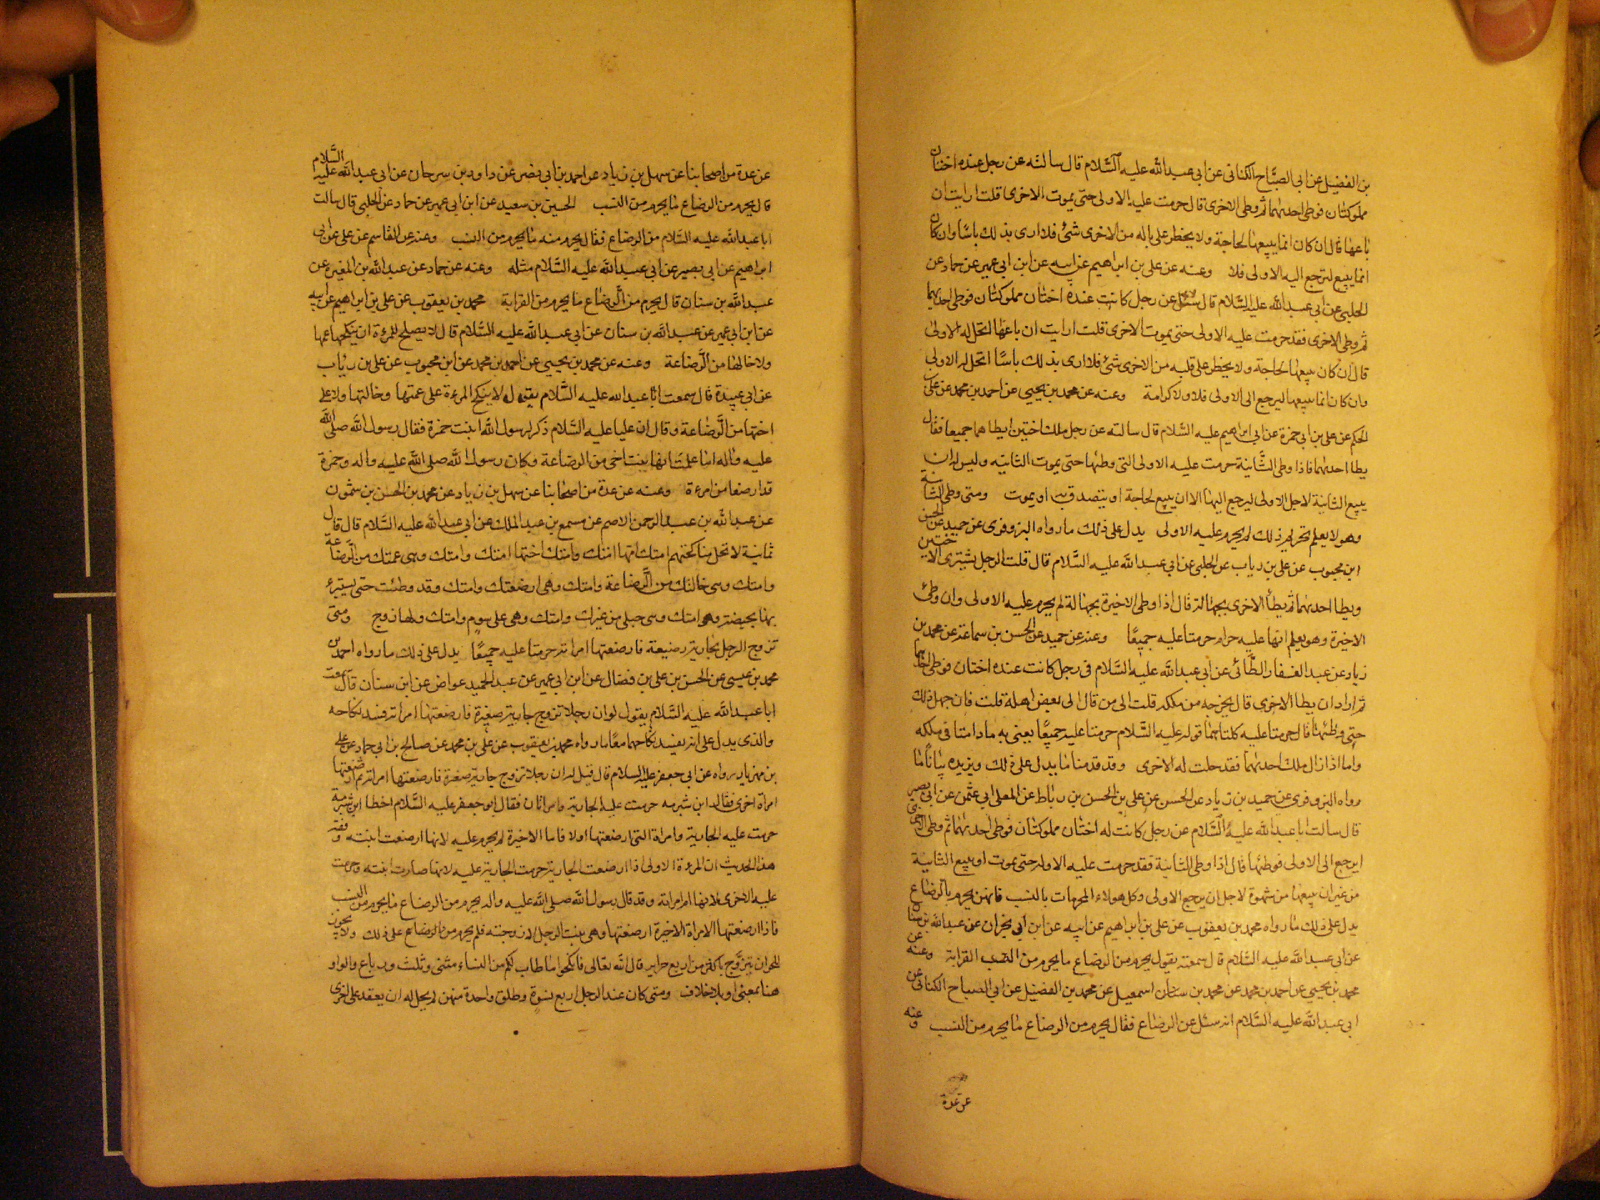 بن الفضيل عن ابى الصباح الكنانى عن ابى عبد الله عليه السلام قال سالته عن رجل عنده اختان
مملوكتان فوطى احديهما ثم وطى الاخرى قال حرمت عليه الاولى حتى يموت الاخرى قلت ارايت ان
باعها قال ان كان انما يبيعها لحاجة ولا يخطر على باله من الاخرى شئ فلا ارى بذلك باسا وان كان
انما يبيع ليرجع اليه الاولى فلا وعنه عن على بن ابراهيم عن ابيه عن ابن ابى عمير عن حماد عن
الحلبى عن ابى عبد الله عليه السلام قال سئل عن رجل كانت عنده اختان مملوكتان فوطى احديهما
ثم وطى الاخرى فقد حرمت عليه الاولى حتى يموت الاخرى قلت ارايت ان باعها اتحل له الاولى
قال ان كان يبيعها لحاجة ولا يخطر على قلبه من الاخرى شئ فلا ارى بذلك باسا اتحل له الاولى
وان كان انما يبيعها ليرجع الى الاولى فلا ولا كرامة وعنه عن محمد بن يحيى عن احمد بن محمد عن على
الحكم عن على بن ابى حمزة عن ابى ابراهيم عليه السلام قال سالته عن رجل ملك اختين ايطاهما جميعا فقال
يطا احديهما فاذا وطى الثانية حرمت عليه الاولى التى وطئها حتى يموت الثانيه وليس له ان
يبيع الثانية لاجل الاولى ليرجع اليها الا ان يبيع لحاجة او يتصدق بها او يموت ومتى وطى الثانية
وهو لا يعلم تحريم ذلك لم يحرم عليه الاولى يدل على ذلك ما رواه البزوفرى عن حميد عن الحسن
ابن محبوب عن على بن رياب عن الحلبى عن ابى عبد الله عليه السلام قال قلت الرجل يشترى الاختين
ويطا احديهما ثم يطأ الاخرى بجهالة قال اذا وطى الاخيرة بجهالة لم يحرم عليه الاولى وان وطئ
الاخيرة وهو يعلم انها عليه حرام حرمتا عليه جميعا وعنه عن حميد عن الحسن بن سماعة عن محمد بن
زياد عن عبد الغفار الطائى عن ابى عبد الله عليه السلام فى رجل كانت عنده اختان فوطى احديهما
ثم اراد ان يطا الاخرى قال يخرجه من ملكه قلت الى من قال الى بعض اهله قلت فان جهل ذلك
حتى وطئها قال حرمتا عليه كلتاهما قوله عليه السلام حرمتا عليه جميعا يعنى به ما دامتا فى ملكه
واما اذا زال ملك احديهما فقد حلت له الاخرى وقد قدمنا ما يدل على ذلك ويزيده بيانا ما
رواه البزوفرى عن حميد بن زياد عن الحسن عن على بن الحسن بن رباط عن المعلى ابى عثمن عن ابى بصير
قال سالت ابا عبد الله عليه السلام عن رجل كانت له اختان مملوكتان فوطى احديهما ثم وطى الاخرى
ايرجع الى الاولى فوطئها قال اذا وطى الثانية فقد حرمت عليه الاولى حتى يموت او يبيع الثانية
من غير ان يبيعها من شهوة لاجل ان يرجع الاولى وكل هولاء المحرمات بالنسب فانهن يحرمن بالرضاع
يدل على ذلك ما رواه محمد بن يعقوب عن على بن ابراهيم عن ابيه عن ابن ابى نجران عن عبد الله بن سنان
عن ابى عبد الله عليه السلام قال سمعته يقول يحرم من الرضاع ما يحرم من القرابة وعنه عن
محمد بن يحيى عن احمد بن محمد عن محمد بن اسمعيل عن محمد بن الفضيل عن ابى الصباح الكنانى عن
ابى عبد الله عليه السلام انه سئل عن الرضاع فقال يحرم من الرضاع ما يحرم من النسب وعنه
عن عدة
عن عدة من اصحابنا عن سهل بن زياد عن احمد بن ابى نصر عن داود بن سرحان عن ابى عبد الله عليه السلام
قال يحرم من الرضاع ما يحرم من النسب الحسين بن سعيد عن ابن ابى عمير عن حماد عن الحلبى قال سالت
ابا عبد الله عليه السلام من الرضاع فقال يحرم منه ما يحرم من النسب وعنه عن القاسم عن على عن ابى
ابراهيم عن ابى بصير عن ابى عبد الله عليه السلام مثله وعنه عن حماد عن عبد الله بن المغيرة عن
عبد الله بن سنان قال يحرم من الرضاع ما يحرم من القرابة محمد بن يعقوب عن على بن ابراهيم عن ابيه
عن ابن ابى عمير عن عبد الله بن سنان عن ابى عبد الله عليه السلام قال لا يصلح للمرءة ان ينكحها عمها
ولا خالها من الرضاعة وعنه عن محمد بن يحيى عن احمد بن محمد عن ابن محبوب عن على بن رياب
عن ابى عبيدة قال سمعت ابا عبد الله عليه السلام يقول لا ينكح المرءة على عمتها وخالتها ولا على
اختها من الرضاعة وقال ان عليا عليه السلام ذكر لرسول الله ابنت حمزة فقال رسول الله صلى الله
عليه واله اما علمت انها بنت اخى من الرضاعة وكان رسول الله صلى الله عليه واله وحمزة
قد ارضعا من امرءة وعنه عن عدة من اصحابنا عن سهل بن زياد عن محمد بن الحسن بن شمون
عن عبد الله بن عبد الرحمن الاصم عن مسمع بن عبد الملك عن ابى عبد الله عليه السلام قال قال
ثمانية لا تحل مناكحتهم امتك امها امتك وامتك اختها امتك وامتك وهى عمتك من الرضاعة
وامتك وهى خالتك من الرضاعة وامتك وهى ارضعتك وامتك وقد وطئت حتى يستبرئ
بها بحيضة وهى امتك وهى حبلى من غيرك وامتك وهى على سوم وامتك ولها زوج ومتى
تزوج الرجل بجارية رضيعة فارضعتها امراته حرمتا عليه جميعا يدل على ذلك ما رواه احمد بن
محمد بن عيسى عن الحسن بن على بن فضال عن ابن ابى عمير عن عبد الحميد عواض عن ابن سنان قال سمعت
ابا عبد الله عليه السلام يقول لو ان رجلا تزوج جارية صغيرة فارضعتها امراته فسد نكاحه
والذى يدل على انه يفسد نكاحهما معا ما رواه محمد بن يعقوب عن على بن محمد عن صالح بن ابى حماد عن على
بن مهزيار رواه عن ابى جعفر عليه السلام قال قيل له ان رجلا تزوج جارية صغيرة فارضعتها امراته ثم ارضعتها
امراة اخرى فقال ابن شبرمه حرمت عليه الجارية وامراتان فقال ابو جعفر عليه السلام اخطا ابن شبرمة
حرمت عليه الجارية وامراة التى ارضعتها اولا فاما الاخيرة لم يحرم عليه لانها ارضعت ابنته وفقه
هذا الحديث ان المرءة الاولى اذا ارضعت الجارية حرمت الجارية عليه لانها صارت ابنته وحرمت
عليه الاخرى لانها ام امراته وقد قال رسول الله صلى الله عليه واله يحرم من الرضاع ما يحرم من النسب
فاذا ارضعتها الامراة الاخيرة ارضعتها وهى بنت الرجل لا زوجته فلم يحرم من الرضاع على ذلك ولا يجوز
للحر ان يتزوج باكثر من اربع حراير قال الله تعالى فانكحوا ما طاب لكم من النساء مثنى وثلث ورباع والواو
هنا بمعنى او بلا خلاف ومتى كان عند الرجل اربع نسوة وطلق واحدة منهن لم يحل له ان يعقد على اخرى